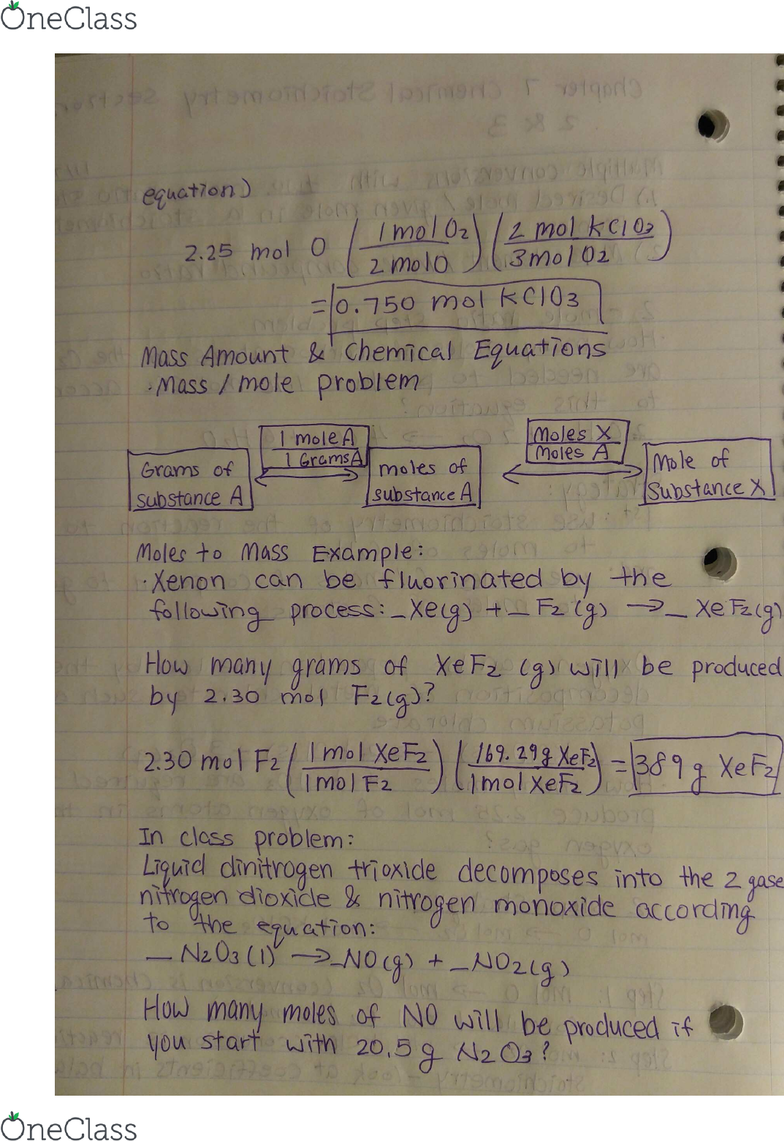 OneClass
equation)
2.25 mol O (1 mol O2 / 2 mol O) (2 mol KClO3 / 3 mol O2)
= 0.750 mol KClO3
Mass Amount & Chemical Equations
·Mass / mole problem
Grams of substance A
1 mole A / 1 Grams A
moles of substance A
Moles X / Moles A
Mole of Substance X
Moles to Mass Example:
·Xenon can be fluorinated by the
following process: _Xe(g) + _ F2 (g) → _ XeF2(g)
How many grams of XeF2 (g) will be produced
by 2.30 mol F2(g)?
2.30 mol F2 (1 mol XeF2 / 1 mol F2) (169.29g XeF2 / 1 mol XeF2) = 389 g XeF2
In class problem:
Liquid dinitrogen trioxide decomposes into the 2 gase
nitrogen dioxide & nitrogen monoxide according
to the equation:
_ N2O3 (l) → _NO(g) + _NO2(g)
How many moles of NO will be produced if
you start with 20.5g N2O3?
OneClass